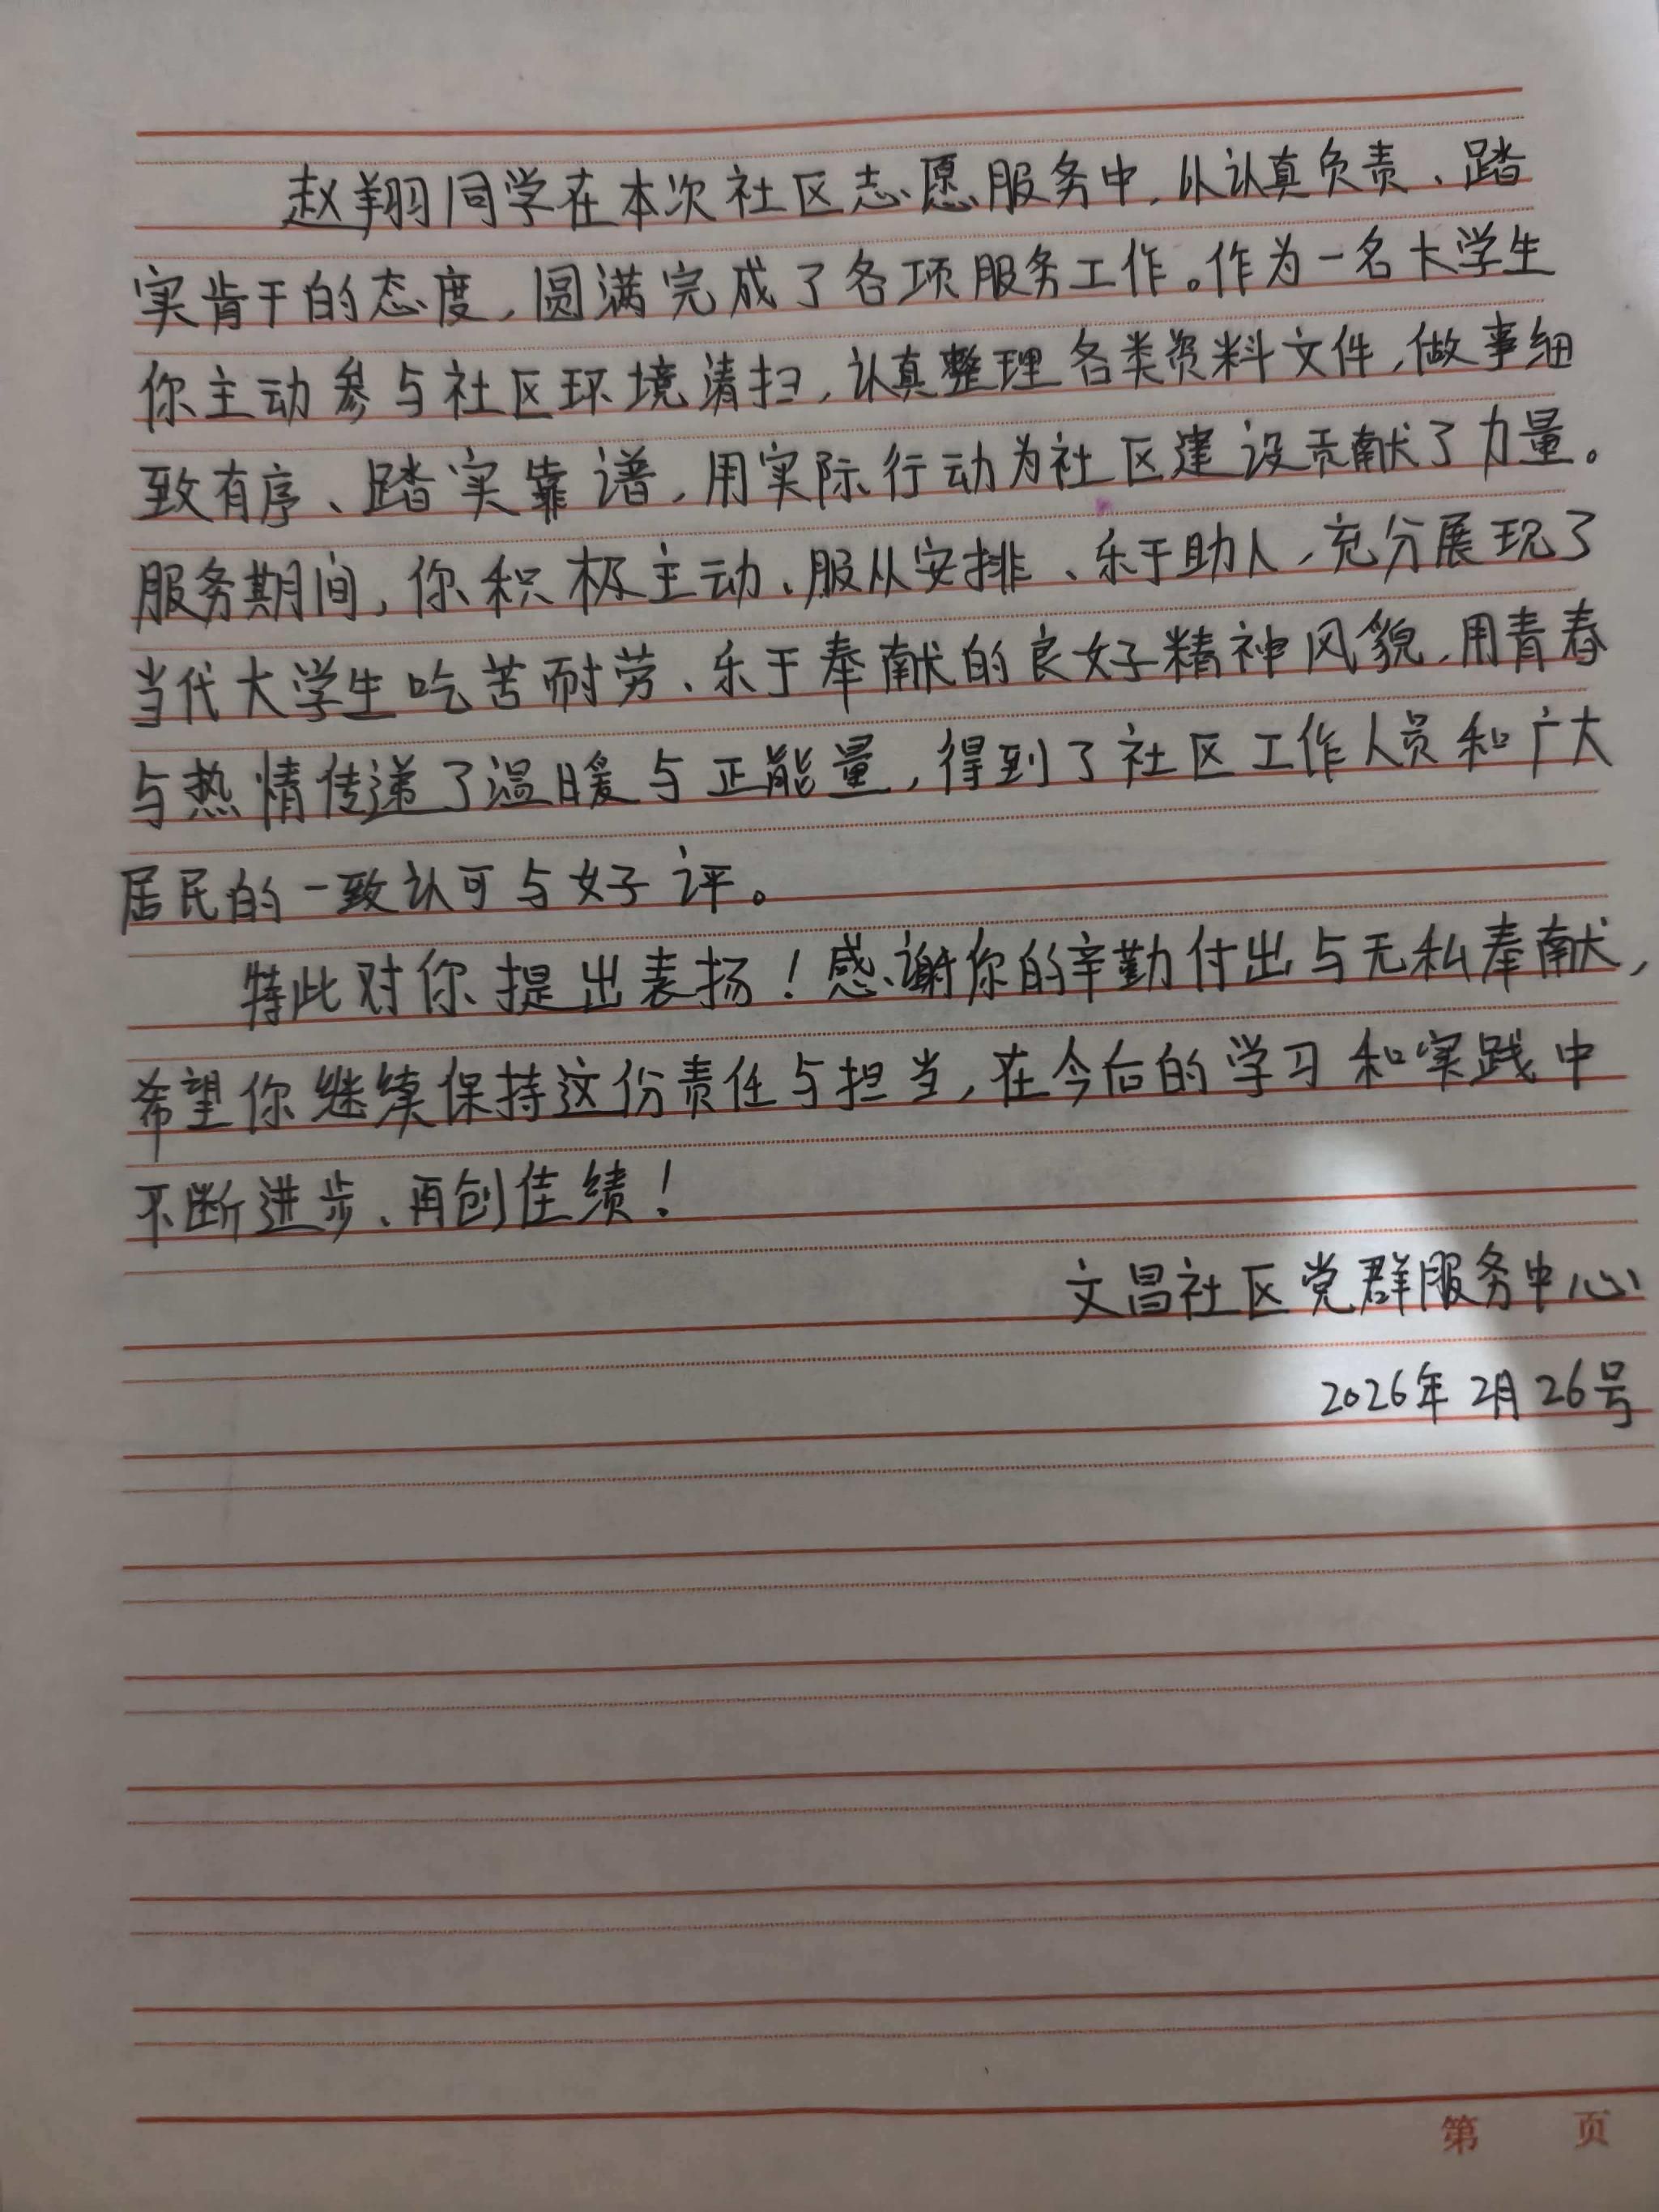 赵翔同学在本次社区志愿服务中,以认真负责、踏
实肯干的态度,圆满完成了各项服务工作。作为一名大学生
你主动参与社区环境清扫,认真整理各类资料文件,做事细
致有序、踏实靠谱,用实际行动为社区建设贡献了力量。
服务期间,你积极主动、服从安排、乐于助人,充分展现了
当代大学生吃苦耐劳、乐于奉献的良好精神风貌,用青春
与热情传递了温暖与正能量,得到了社区工作人员和广大
居民的一致认可与好评。
特此对你提出表扬!感谢你的辛勤付出与无私奉献,
希望你继续保持这份责任与担当,在今后的学习和实践中
不断进步、再创佳绩!
文昌社区党群服务中心
2026年2月26号
第 页